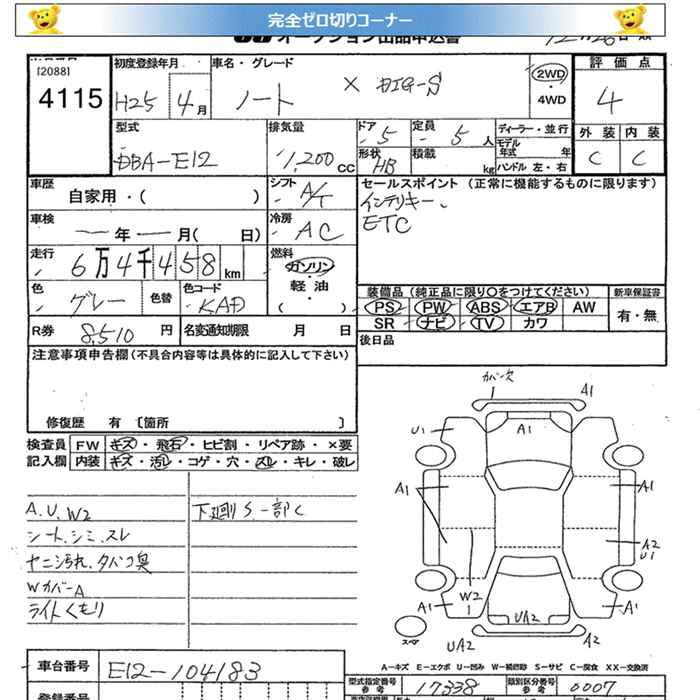 完全ゼロ切りコーナー
オークション出品申込書
[2088]
4115
初度登録年月
H25 4月
車名・グレード
ノート X DIG-S
2WD
・
4WD
評価点
4
外装 内装
C C
型式
DBA-E12
排気量
1,200 CC
ドア 5
定員 5 人
形状 HB
積載 kg
ディーラー・並行
モデル年式 年
ハンドル 左・右
車歴
自家用・( )
シフト A/T
車検
年 月( 日)
冷房 AC
走行
6万4千458km
燃料
ガソリン
・
軽油
( )
色 グレー 色替
色コード KAD
R券 8,510 円
名変通知期限 月 日
セールスポイント (正常に機能するものに限ります)
インテリキー、
ETC
装備品(純正品に限り○をつけてください)
PS PW ABS エアB AW
SR ナビ TV カワ
新車保証書
有・無
後日品
注意事項申告欄(不具合内容等は具体的に記入して下さい)
修復歴 有 〔箇所 〕
検査員
記入欄
FW キズ・飛石・ヒビ割・リペア跡・×要
内装 キズ・汚レ・コゲ・穴・スレ・キレ・破レ
A.U.W2
シート、シミ、スレ
ヤニ汚れ、タバコ臭
WカバーA
ライトくもり
下廻りS 一部C
カバー欠
A1
A1
U1
A1
A1
A2
U1
W2
A1
UA2
A1
UA2
A2
スペア
A-キズ E-エクボ U-凹み W-補修跡 S-サビ C-腐食 XX-交換済
車台番号 E12-104183
登録番号
型式指定番号
参考
17338
類別区分番号
参考
0007